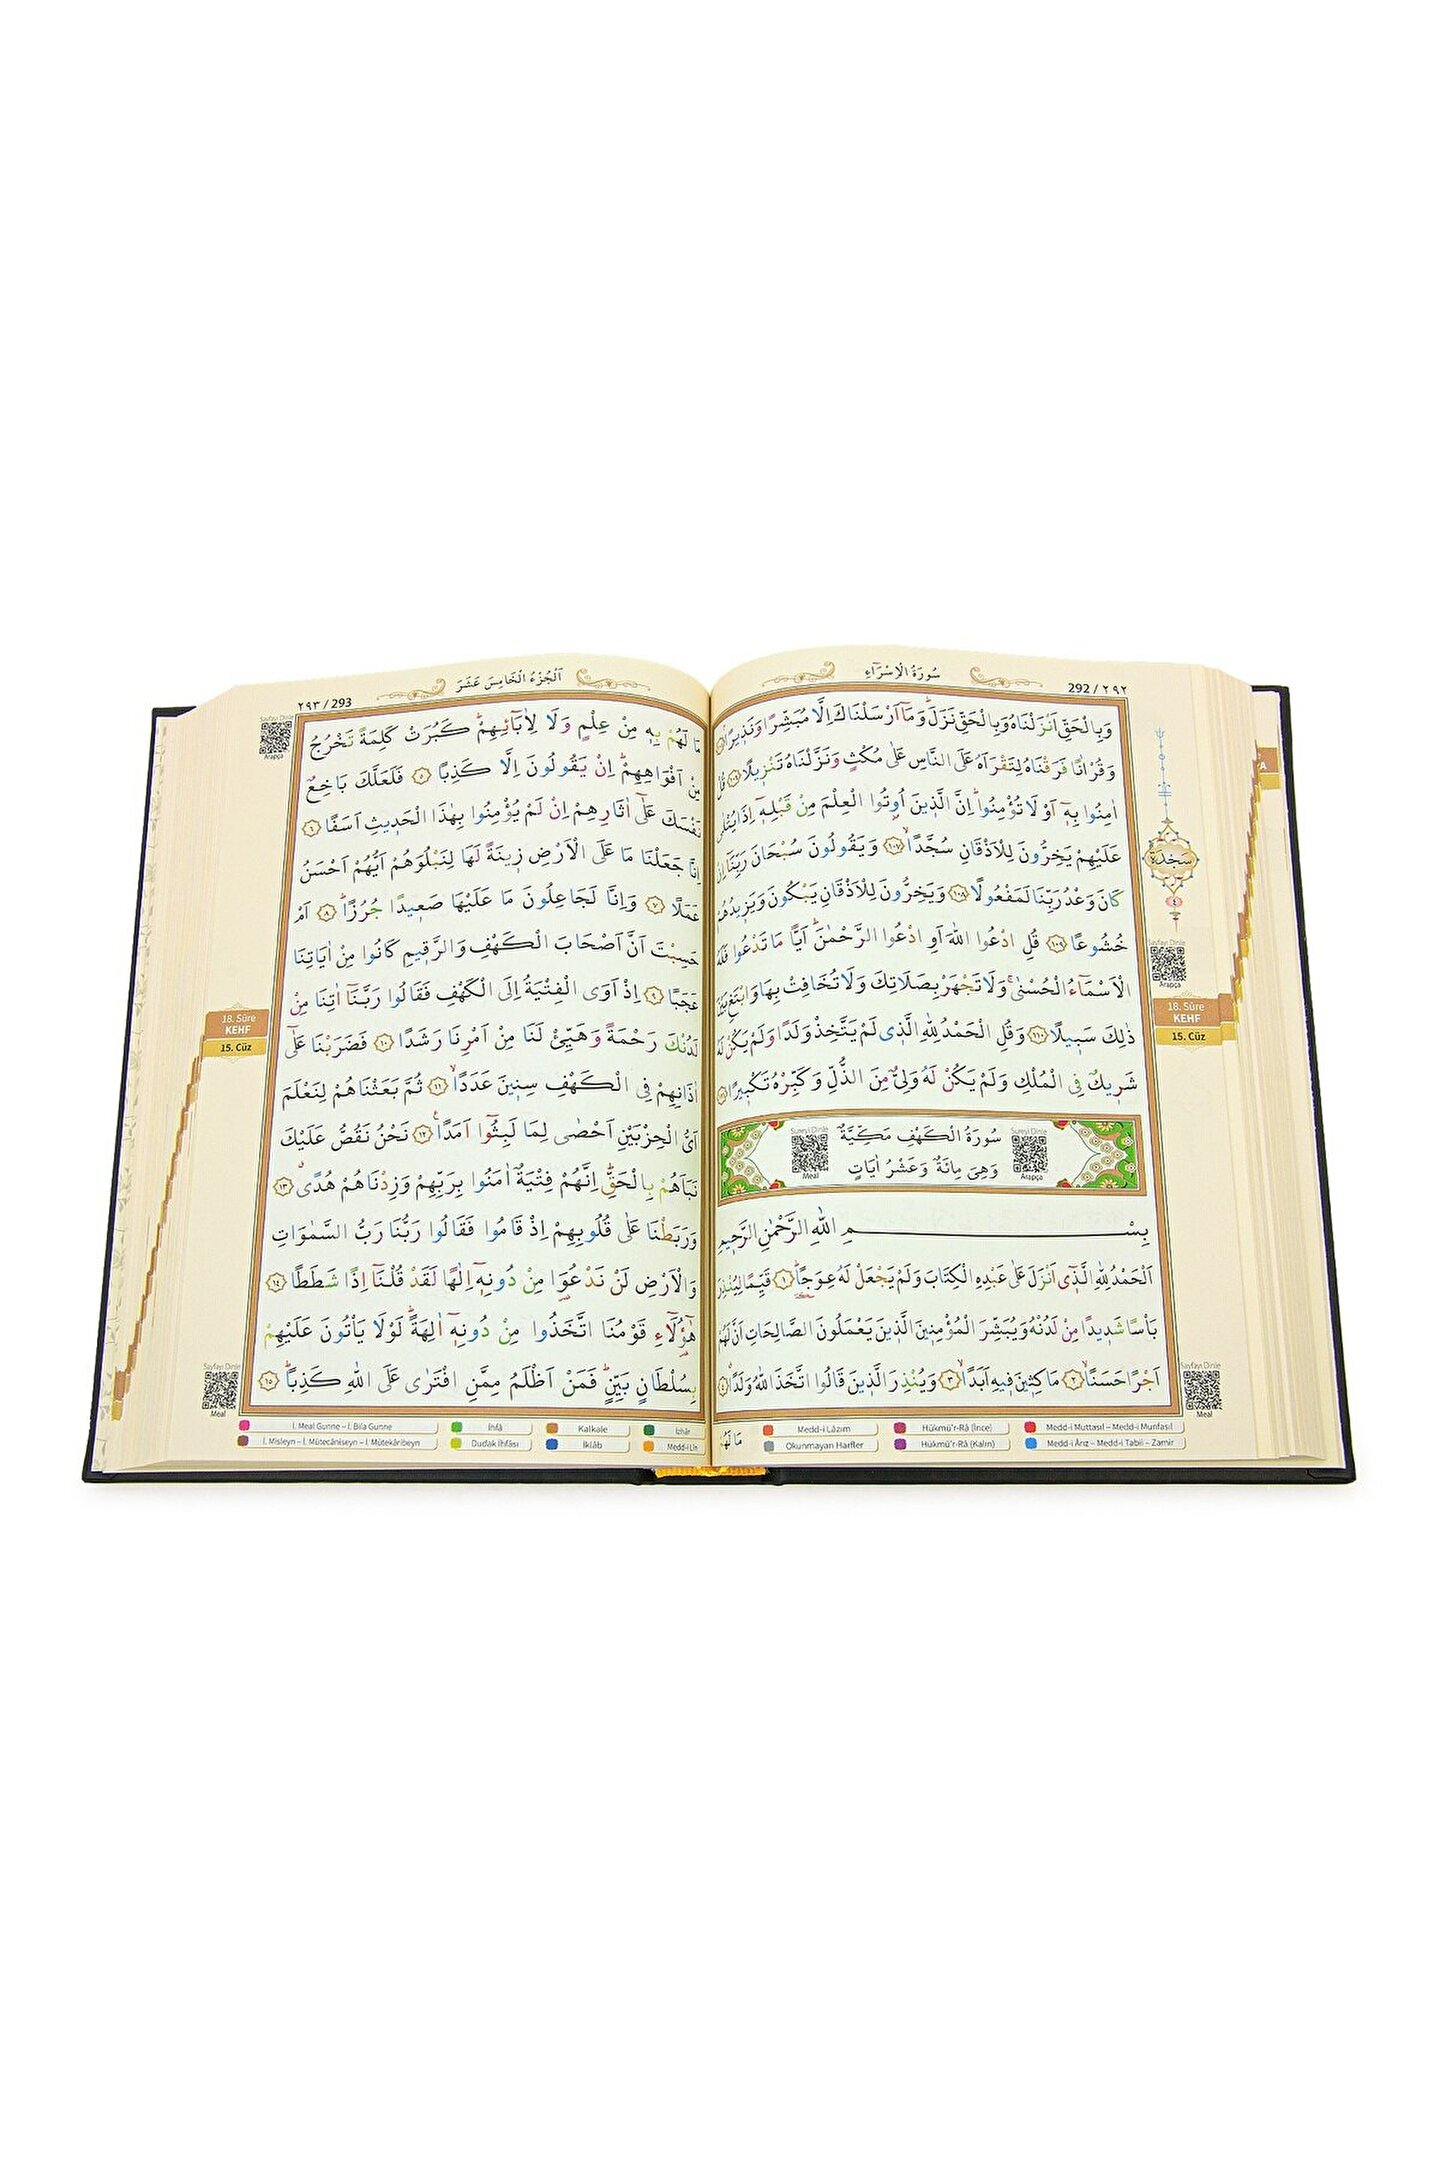 سُورَةُ الْاِسْرَٓاءِ
292 / ٢٩٢
وَبِالْحَقِّ اَنْزَلْنَاهُ وَبِالْحَقِّ نَزَلَۜ وَمَٓا اَرْسَلْنَاكَ اِلَّا مُبَشِّرًا وَنَذ۪يرًاۢ
وَقُرْاٰنًا فَرَقْنَاهُ لِتَقْرَاَهُ عَلَى النَّاسِ عَلٰى مُكْثٍ وَنَزَّلْنَاهُ تَنْز۪يلًا ﴿١٠٦﴾ قُلْ
اٰمِنُوا بِه۪ٓ اَوْ لَا تُؤْمِنُواۜ اِنَّ الَّذ۪ينَ اُو۫تُوا الْعِلْمَ مِنْ قَبْلِه۪ٓ اِذَا يُتْلٰى
عَلَيْهِمْ يَخِرُّونَ لِلْاَذْقَانِ سُجَّدًاۙ ﴿١٠٧﴾ وَيَقُولُونَ سُبْحَانَ رَبِّنَٓا اِنْ
كَانَ وَعْدُ رَبِّنَا لَمَفْعُولًا ﴿١٠٨﴾ وَيَخِرُّونَ لِلْاَذْقَانِ يَبْكُونَ وَيَز۪يدُهُمْ
خُشُوعًا ﴿١٠٩﴾ قُلِ ادْعُوا اللّٰهَ اَوِ ادْعُوا الرَّحْمٰنَۜ اَيًّا مَا تَدْعُوا فَلَهُ
الْاَسْمَٓاءُ الْحُسْنٰىۚ وَلَا تَجْهَرْ بِصَلَاتِكَ وَلَا تُخَافِتْ بِهَا وَابْتَغِ بَيْنَ
ذٰلِكَ سَب۪يلًا ﴿١١٠﴾ وَقُلِ الْحَمْدُ لِلّٰهِ الَّذ۪ي لَمْ يَتَّخِذْ وَلَدًا وَلَمْ يَكُنْ لَهُ
شَر۪يكٌ فِي الْمُلْكِ وَلَمْ يَكُنْ لَهُ وَلِيٌّ مِنَ الذُّلِّ وَكَبِّرْهُ تَكْب۪يرًا ﴿١١١﴾
Sureyi Dinle
Meal
سُورَةُ الْكَهْفِ مَكِّيَّةٌ
وَهِيَ مِائَةٌ وَعَشْرُ اٰيَاتٍ
Sureyi Dinle
Arapça
بِسْمِ اللّٰهِ الرَّحْمٰنِ الرَّح۪يمِ
اَلْحَمْدُ لِلّٰهِ الَّذ۪ٓي اَنْزَلَ عَلٰى عَبْدِهِ الْكِتَابَ وَلَمْ يَجْعَلْ لَهُ عِوَجًاۜ ﴿١﴾ قَيِّمًا لِيُنْذِرَ
بَأْسًا شَد۪يدًا مِنْ لَدُنْهُ وَيُبَشِّرَ الْمُؤْمِن۪ينَ الَّذ۪ينَ يَعْمَلُونَ الصَّالِحَاتِ اَنَّ لَهُمْ
اَجْرًا حَسَنًاۙ ﴿٢﴾ مَاكِث۪ينَ ف۪يهِ اَبَدًاۙ ﴿٣﴾ وَيُنْذِرَ الَّذ۪ينَ قَالُوا اتَّخَذَ اللّٰهُ وَلَدًاۗ ﴿٤﴾
مَا لَهُمْ
سَجْدَة
٤
Sayfayı Dinle
Arapça
18. Sûre
KEHF
15. Cüz
Sayfayı Dinle
Meal
Medd-i Lâzım
Hükmü'r-Râ (İnce)
Medd-i Muttasıl – Medd-i Munfasıl
Okunmayan Harfler
Hükmü'r-Râ (Kalın)
Medd-i Ârız – Medd-i Tabii – Zamir
اَلْجُزْءُ الْخَامِسَ عَشَرَ
٢٩٣ / 293
مَا لَهُمْ بِه۪ مِنْ عِلْمٍ وَلَا لِاٰبَٓائِهِمْۜ كَبُرَتْ كَلِمَةً تَخْرُجُ
مِنْ اَفْوَاهِهِمْۜ اِنْ يَقُولُونَ اِلَّا كَذِبًا ﴿٥﴾ فَلَعَلَّكَ بَاخِعٌ
نَفْسَكَ عَلٰٓى اٰثَارِهِمْ اِنْ لَمْ يُؤْمِنُوا بِهٰذَا الْحَد۪يثِ اَسَفًا ﴿٦﴾
اِنَّا جَعَلْنَا مَا عَلَى الْاَرْضِ ز۪ينَةً لَهَا لِنَبْلُوَهُمْ اَيُّهُمْ اَحْسَنُ
عَمَلًا ﴿٧﴾ وَاِنَّا لَجَاعِلُونَ مَا عَلَيْهَا صَع۪يدًا جُرُزًاۜ ﴿٨﴾ اَمْ
حَسِبْتَ اَنَّ اَصْحَابَ الْكَهْفِ وَالرَّق۪يمِ كَانُوا مِنْ اٰيَاتِنَا
عَجَبًا ﴿٩﴾ اِذْ اَوَى الْفِتْيَةُ اِلَى الْكَهْفِ فَقَالُوا رَبَّنَٓا اٰتِنَا مِنْ
لَدُنْكَ رَحْمَةً وَهَيِّئْ لَنَا مِنْ اَمْرِنَا رَشَدًا ﴿١٠﴾ فَضَرَبْنَا عَلٰٓى
اٰذَانِهِمْ فِي الْكَهْفِ سِن۪ينَ عَدَدًاۙ ﴿١١﴾ ثُمَّ بَعَثْنَاهُمْ لِنَعْلَمَ
اَيُّ الْحِزْبَيْنِ اَحْصٰى لِمَا لَبِثُٓوا اَمَدًا۟ ﴿١٢﴾ نَحْنُ نَقُصُّ عَلَيْكَ
نَبَاَهُمْ بِالْحَقِّۜ اِنَّهُمْ فِتْيَةٌ اٰمَنُوا بِرَبِّهِمْ وَزِدْنَاهُمْ هُدًىۗ ﴿١٣﴾
وَرَبَطْنَا عَلٰى قُلُوبِهِمْ اِذْ قَامُوا فَقَالُوا رَبُّنَا رَبُّ السَّمٰوَاتِ
وَالْاَرْضِ لَنْ نَدْعُوَ۬ا مِنْ دُونِه۪ٓ اِلٰهًا لَقَدْ قُلْنَٓا اِذًا شَطَطًا ﴿١٤﴾
هٰٓؤُ۬لَٓاءِ قَوْمُنَا اتَّخَذُوا مِنْ دُونِه۪ٓ اٰلِهَةًۜ لَوْلَا يَأْتُونَ عَلَيْهِمْ
بِسُلْطَانٍ بَيِّنٍۜ فَمَنْ اَظْلَمُ مِمَّنِ افْتَرٰى عَلَى اللّٰهِ كَذِبًاۜ ﴿١٥﴾
Sayfayı Dinle
Arapça
18. Sûre
KEHF
15. Cüz
Sayfayı Dinle
Meal
İ. Meal Gunne – İ. Bila Gunne
İhfâ
Kalkale
İzhâr
İ. Misleyn – İ. Mütecâniseyn – İ. Mütekâribeyn
Dudak İhfâsı
İklâb
Medd-i Lîn